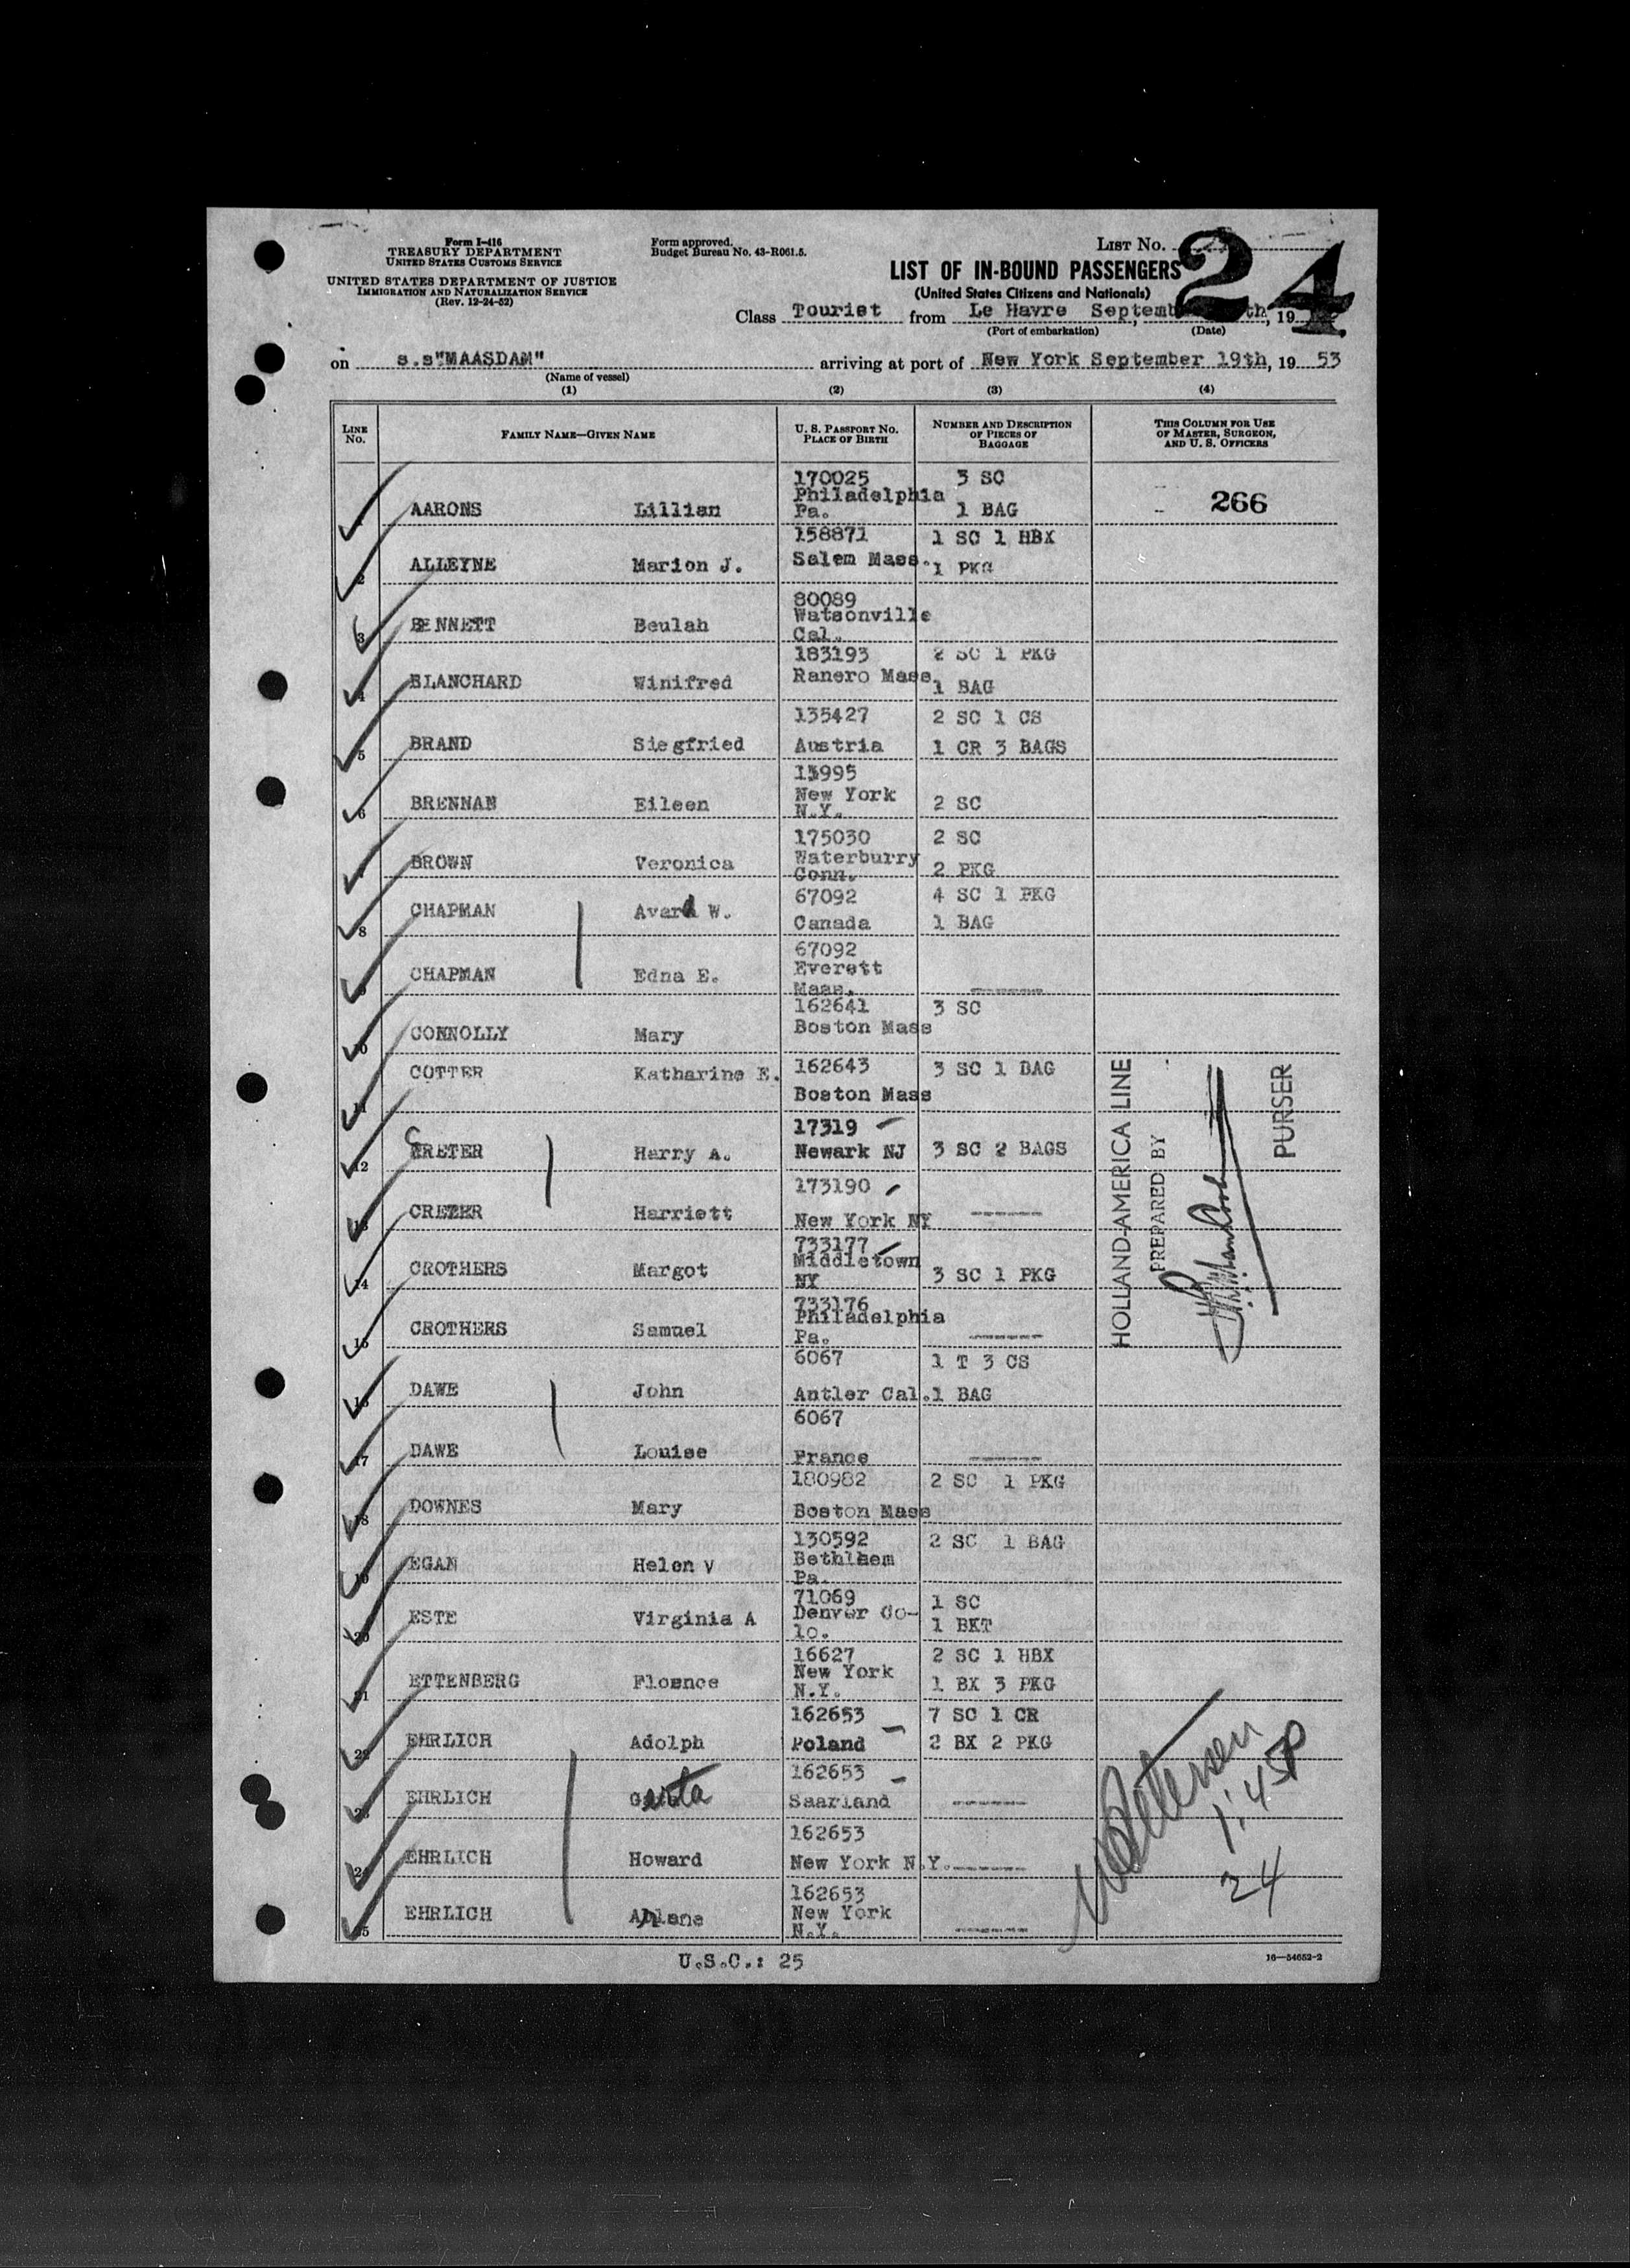 Form I-416
TREASURY DEPARTMENT
UNITED STATES CUSTOMS SERVICE
UNITED STATES DEPARTMENT OF JUSTICE
IMMIGRATION AND NATURALIZATION SERVICE
(Rev. 12-24-52)
Form approved.
Budget Bureau No. 43-R061.5.
LIST No.
24
LIST OF IN-BOUND PASSENGERS
(United States Citizens and Nationals)
Class Tourist from Le Havre th, 19
(Port of embarkation) (Date)
on s.s"MAASDAM" arriving at port of New York September 19th, 19 53
(Name of vessel)
(1) (2) (3) (4)
LINE No. FAMILY NAME—GIVEN NAME U. S. PASSPORT No. PLACE OF BIRTH NUMBER AND DESCRIPTION OF PIECES OF BAGGAGE THIS COLUMN FOR USE OF MASTER, SURGEON, AND U. S. OFFICERS
170025 3 SC
Philadelphia
AARONS Lillian Pa. 1 BAG 266
158871 1 SC 1 HBX
2 ALLEYNE Marion J. Salem Mass. 1 PKG
80089
Watsonville
3 BENNETT Beulah Cal.
183193 2 SC 1 PKG
4 BLANCHARD Winifred Ranero Mass. 1 BAG
135427 2 SC 1 CS
5 BRAND Siegfried Austria 1 CR 3 BAGS
13995
6 BRENNAN Eileen New York N.Y. 2 SC
175030 2 SC
BROWN Veronica Waterburry Conn. 2 PKG
67092 4 SC 1 PKG
8 CHAPMAN Avard W. Canada 1 BAG
67092
CHAPMAN Edna E. Everett Mass. ------
162641 3 SC
10 CONNOLLY Mary Boston Mass
11 COTTER Katharine E. 162643 3 SC 1 BAG
Boston Mass
17319
12 CRETER Harry A. Newark NJ 3 SC 2 BAGS
173190
13 CRETER Harriett New York NY ------
733177
14 CROTHERS Margot Middletown NY 3 SC 1 PKG
733176
Philadelphia
15 CROTHERS Samuel Pa. ------
6067 1 T 3 CS
16 DAWE John Antler Cal. 1 BAG
6067
17 DAWE Louise France ------
180982 2 SC 1 PKG
18 DOWNES Mary Boston Mass
130592 2 SC 1 BAG
19 EGAN Helen V Bethlhem
Pa.
71069 1 SC
20 ESTE Virginia A Denver Co-
lo. 1 BKT
16627 2 SC 1 HBX
21 ETTENBERG Flornce New York
N.Y. 1 BX 3 PKG
162653 7 SC 1 CR
22 EHRLICH Adolph Poland 2 BX 2 PKG
162653
23 EHRLICH Saarland ------
162653
24 EHRLICH Howard New York N.Y. ------
162653
25 EHRLICH New York
N.Y. ------
HOLLAND-AMERICA LINE
PREPARED BY
PURSER
1:45P
24
U.S.C.: 25
16—54652-2